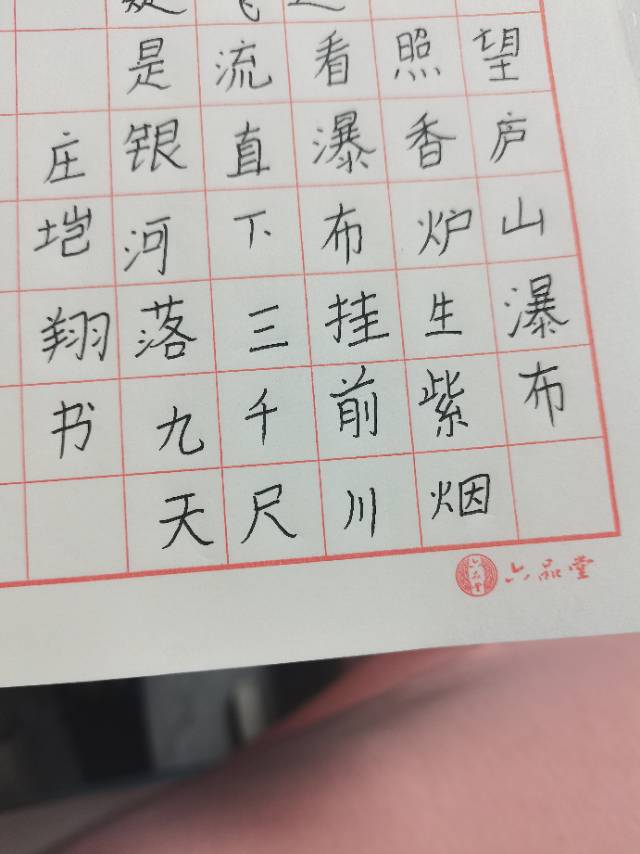 望庐山瀑布
照香炉生紫烟
看瀑布挂前川
流直下三千尺
是银河落九天
庄垲翔书
六品堂